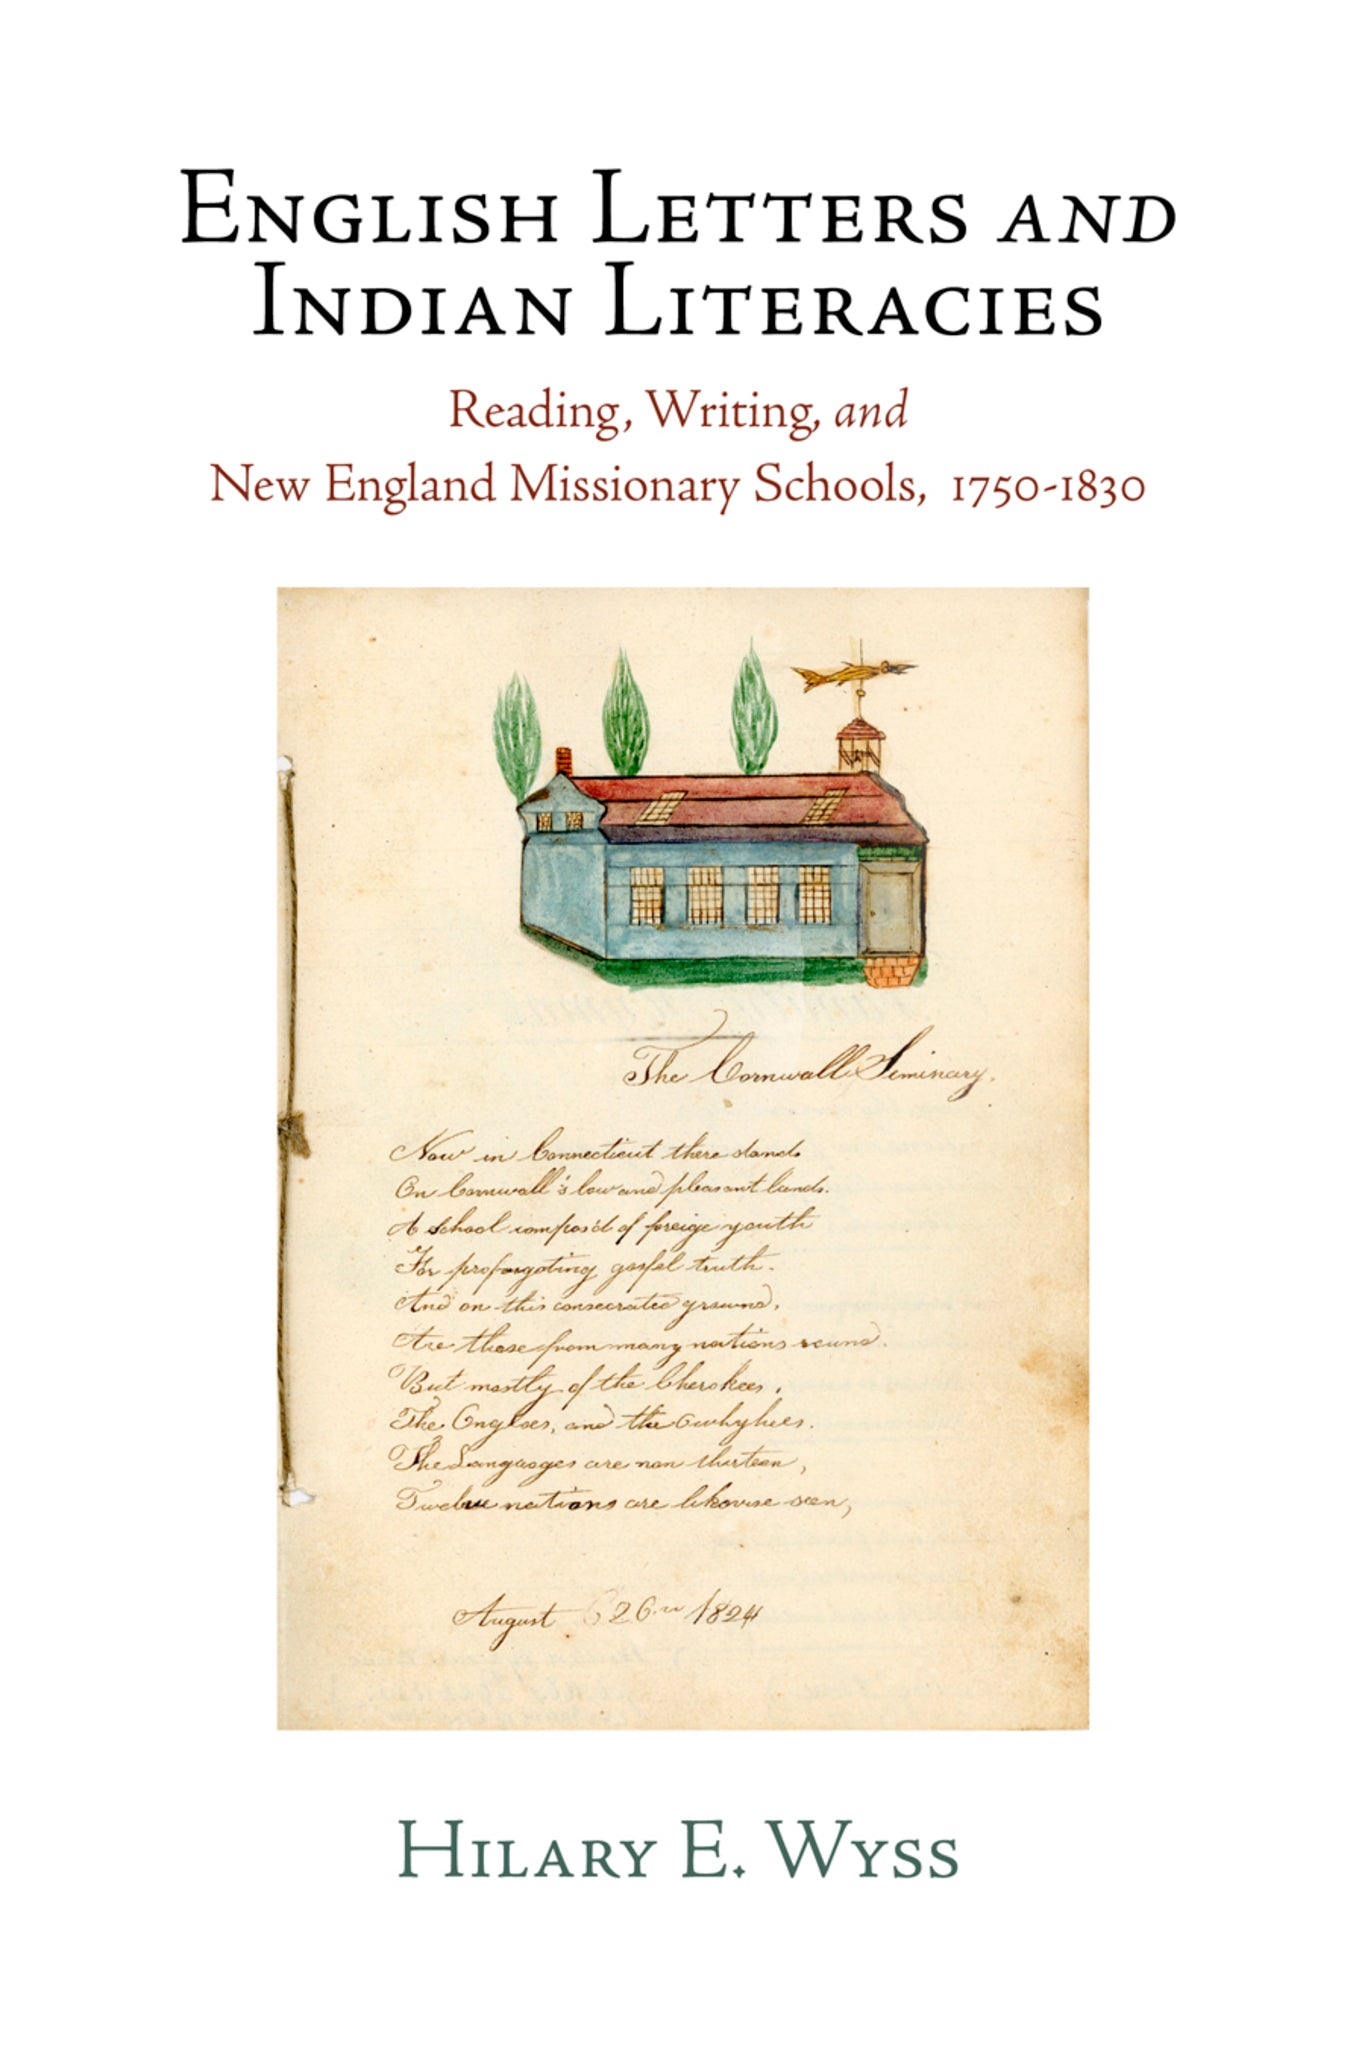 ENGLISH LETTERS AND
INDIAN LITERACIES
Reading, Writing, and
New England Missionary Schools, 1750-1830
The Cornwall Seminary.
Now in Connecticut there stands
On Cornwall's low and pleasant lands.
A school compos'd of foreige youth
For propagating gospel truth.
And on this consecrated ground,
Are those from many nations round.
But mostly of the Cherokees,
The Angloes, and the Owhyhees.
The Languages are now thirteen,
Twelve nations are likewise seen,
August 26 1824
HILARY E. WYSS